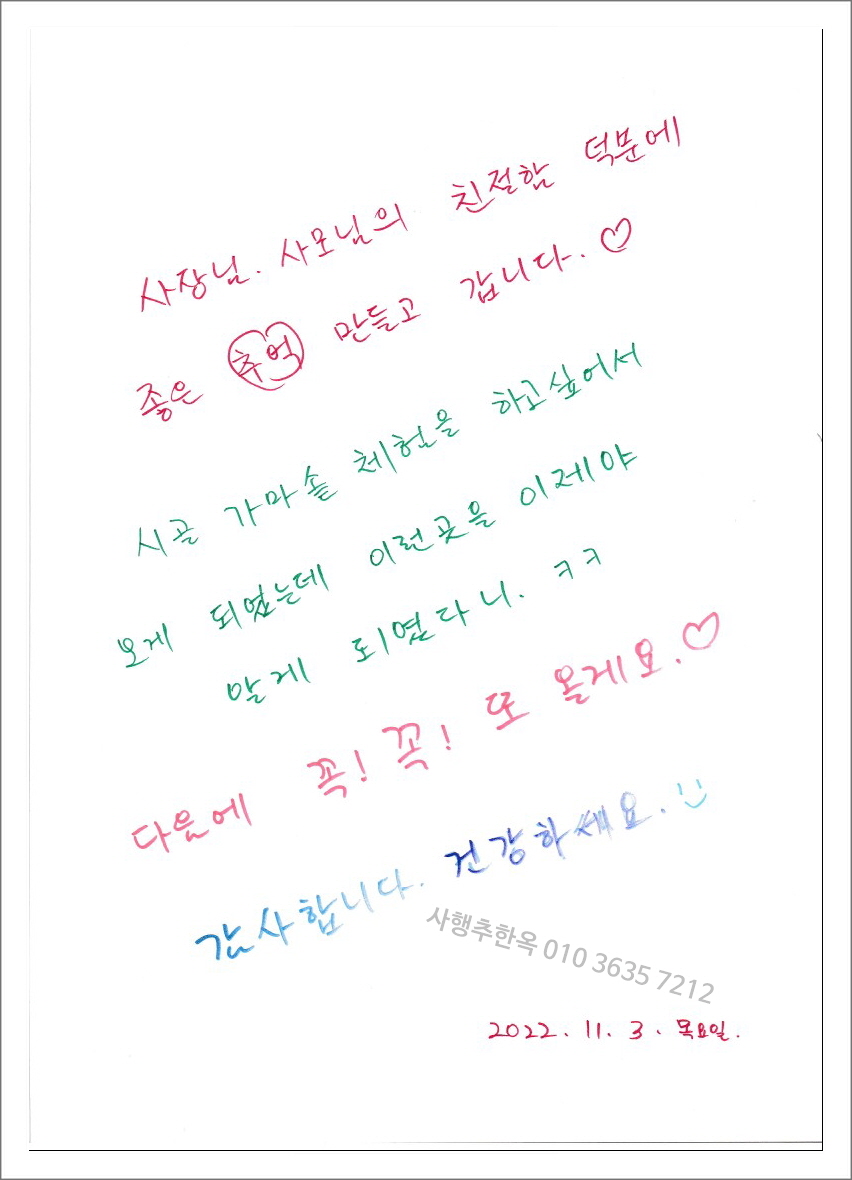 사장님. 사모님의 친절함 덕분에
좋은 추억 만들고 갑니다. ♡
시골 가마솥 체험을 하고싶어서
오게 되었는데 이런곳을 이제야
알게 되였다니. ㅋㅋ
다음에 꼭! 꼭! 또 올게요. ♡
감사합니다. 건강하세요. :)
사행추한옥 010 3635 7212
2022. 11. 3. 목요일.